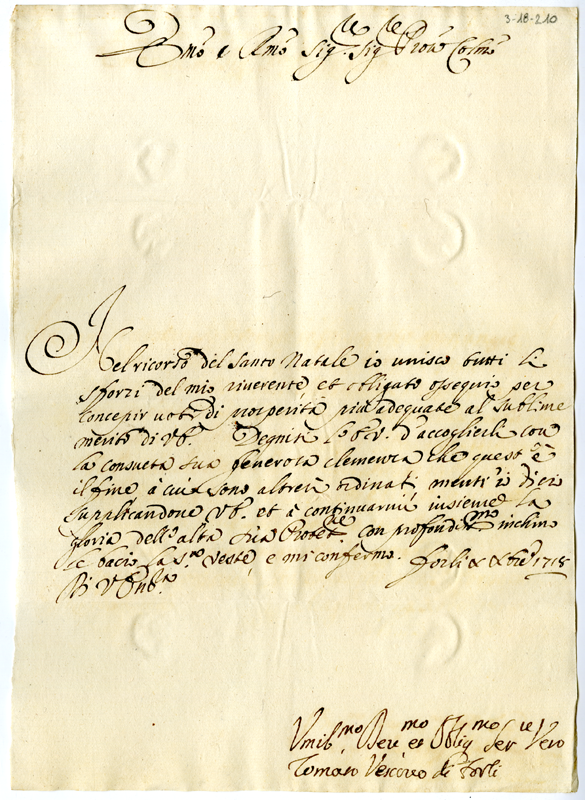 3-18-210
Em̃o e Rm̃o Sig.re Sig.re Prõn Colm̃o
Nel ricorso del Santo Natale io unisco tutti li
sforzi del mio riverente et obligato ossequio per
concepir voti di prosperità più adequate al sublime
merito di V.E. Degnisi l'E.V. d'accoglierli con
la consueta sua generosa clemenza che quest'è
il fine, à cui sono altresì ordinati, mentr'io
supplicandone V.E. et à continuarmi insieme la
gloria dell'alta sua Protet.ne con profondis.mo inchino
le bacio la S. veste, e mi confermo. Forlì X Xbre 1718
Di V.
Vmil.mo Dev.mo et Oblig.mo Ser.re Vero
Tomaso Vescovo di Forlì